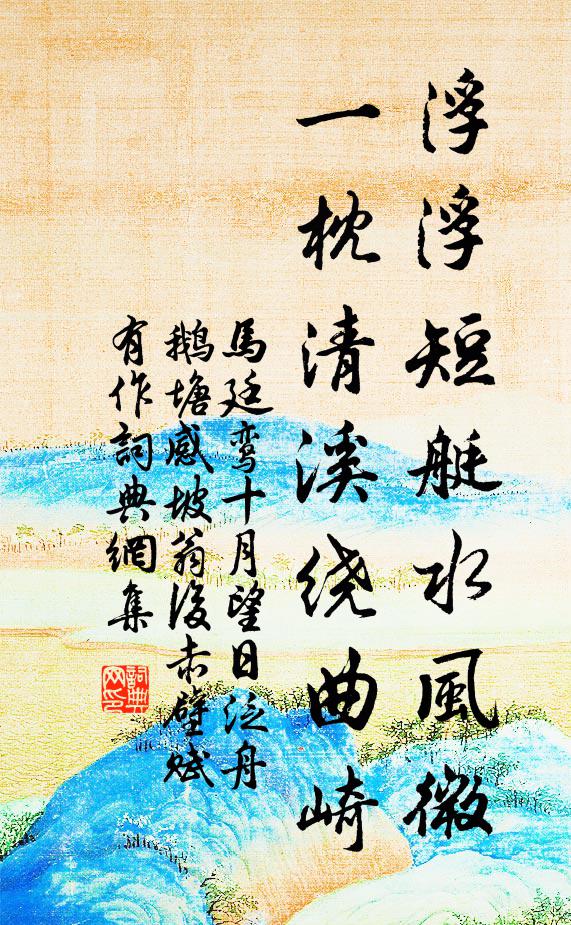 浮浮短艇水風微
一枕清溪绕曲崎
馬廷鸾十月望日泛舟
鵝塘感坡翁後赤壁赋
有作詞典網集
詞典网印